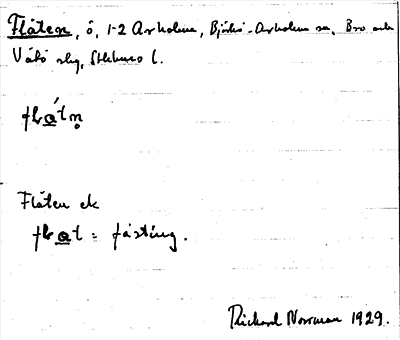 Flåten, ö, 1-2 Arholma, Björkö-Arholma sn, Bro och
Vätö slg, Sthlms l.
Flåten etc
= fästing.
Rickard Norrman 1929.